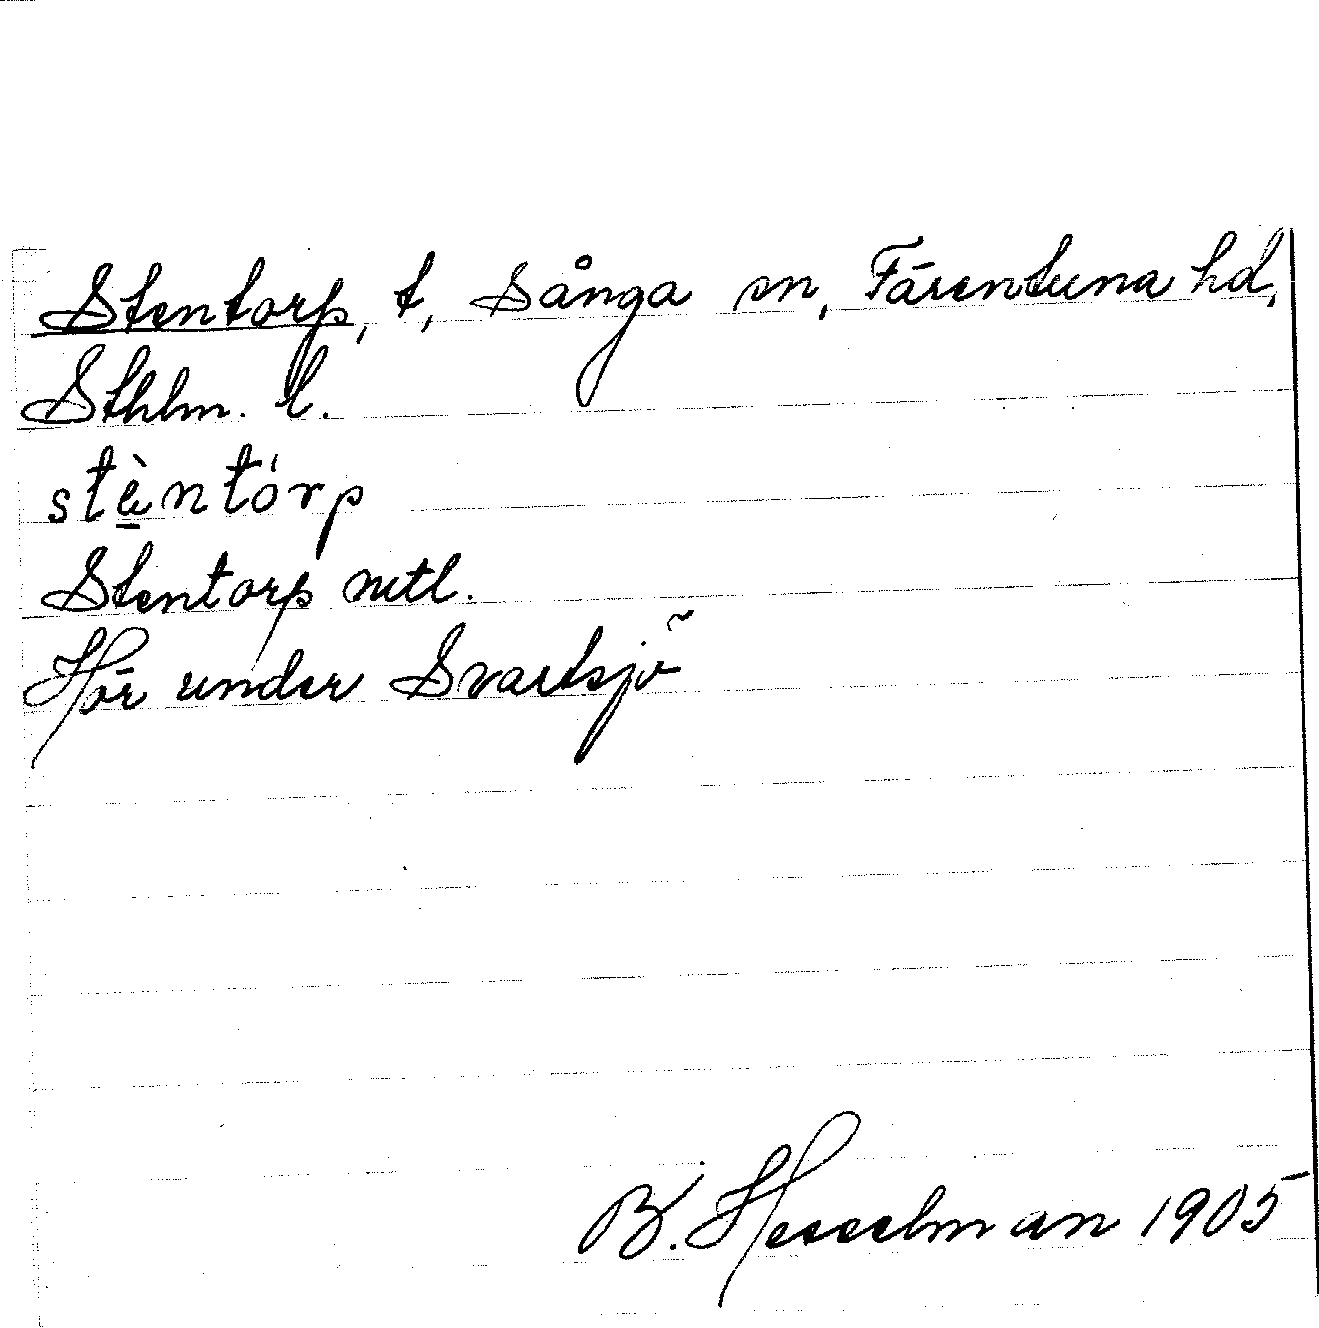 Stentorp, t, Sånga sn, Färentuna hd,
Sthlm. l.
stèntórp
Stentorp mtl.
Hör under Svartsjö
B. Hesselman 1905